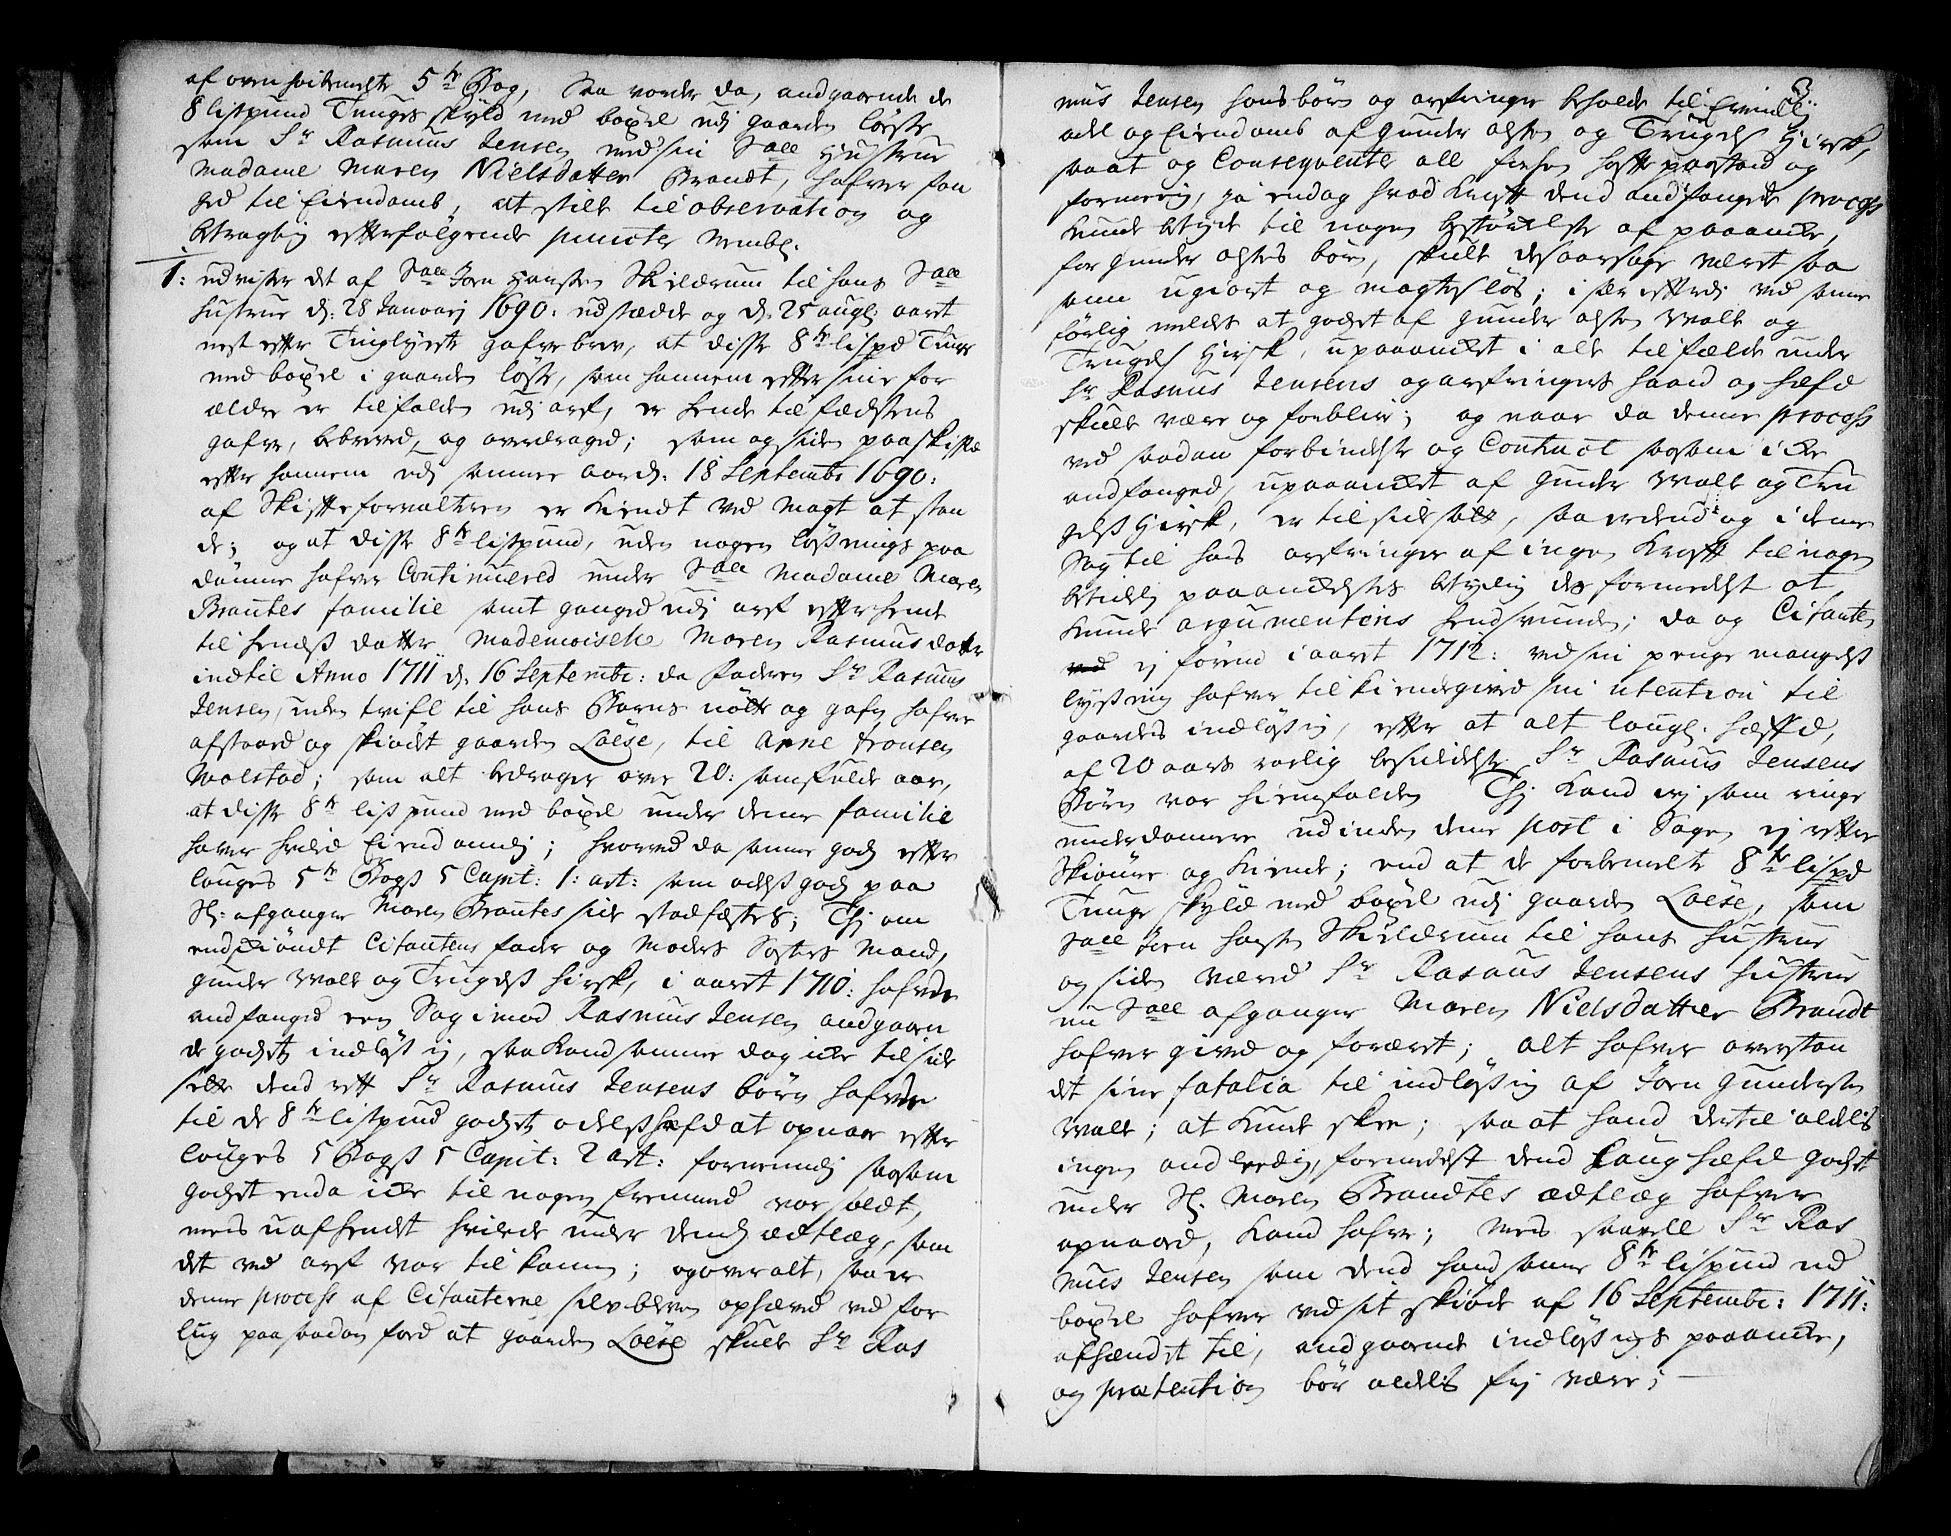 af oven hoitbemelte 5te Bog, Saa vorder da, andgaaende de
8 lispund Tunges skyld med böxel udj gaarden Löese
som Sr Rasmus Jensen med sin Sall Hustrue
Madame Maren Nielsdatter Brandt, hafver faa
hed til Eiendomb, at stille til observation og
betragtn efterfölgende puncter nembl.
1: udviser det af Sall Jörn Hansen Skieldrum til hans Sall
Hustrue d: 28 Januarij 1690: udstædde og d: 25 augl: aaret
nest efter Tinglyste gafvebrev, at disse 8te lispd Tunge
med böxel i gaarden löse, som hannem efter sine for
ældre er tilfalden udj arf, er hende til fædsens
gafve, bebreved, og overdraged; som og siden paa skifte
efter hannem udj samme aar d: 18 Septembr 1690:
af Skifteforvalteren er Kiendt ved Magt at stan
de; og at disse 8te lispund, uden nogen lösnings paa
dömme hafver Continuered under Sall Madame Maren
Brantes familie samt ganged udj arf efter hende
til hendes datter Mademoiselle Maren Rasmusdatter
indtil Anno 1711 d: 16 Septembr: da faderen Sr Rasmus
Jensen, uden tvifl til hans Barns nötte og gafn hafver
afstaaed og skiödet gaarden Löese, til Arne Fronsen
Walstad; som alt bedrager over 20: samfulde aar,
at disse 8te lispund med böxel under denne familie
hafver hvilet Eiendomlig; hvorved da samme gods efter
louges 5te Bogs 5 Capit: 1: art: som odels gods paa
Sl: afgangne Maren Brantes side stadfæstes; Thj om
endskiöndt Citantens fader og Moders Söster Mand,
Gunder Wale og Trugels Hirsk, i aaret 1710: hafver
andfanged een Sag imod Rasmus Jensen andgaaen
de godsets indlösning, saa kand samme dog icke til side
sette dend rett Sr Rasmus Jensens börn hafver
til de 8te lispund godsets odelshæfd at opnaae efter
louges 5 Bogs 5 Capit: 2 art: fornemmelig saasom
godset enda icke til nogen fremmed var soldt,
men uafhendt hvilede under dend ædtlæg, som
det ved arf var tilkommen; og overalt, saa er
denne process af Citanterne selvbleven ophæved ved for
lüg paa saadan fod at gaarden Löese skulle Sr Ras
3.
mus Jensen hans börn og arfvinger beholde til Eiendoms
odel og Eiendomb af Gunder Olsen og Trugels Hirsk,
saat og Consequenter all first efter paastand og
formening, ja endog hvad kraft dend andfangede process
kunde betyde til nogen bestörkelse af paaancke,
for Gunder Olsens börn, skulle desaarsage været saa
som ugiort og magteslös; især efterdi ved samme
forlig meldes at godset af Gunder Olsen Wale og
Trugels Hirsk, upaaancket i alle tilfælde under
Sr Rasmus Jensens og arfvingers haand og hæfd
skulle være og forbliv; og naar da denne process
ved saadan forbindelse og Contract saasom icke
andfanged, upaaancket af Gunder Wale og Tru
gels Hirsk, er tilside satt, saa er dend og i denne
Sag til hans arfvinger af ingen Kraft til nogen
betiden paaanckelses betydning desformedelst at
kunde argumentens hensiunde; da og Citanten
ej förend i aaret 1712: ved sin penge mangels
lysning hafver tilkiendegived sin intention til
gaardens indlösning, efter at alt lougl. hæfd,
af 20 aars rolig besiddelse Sr Rasmus Jensens
Börn var hiemfalden Thj Kand vej som ringe
underdommere udinden denne post i Sagen ej rettere
Skiönne og Kiende; end at de forbemelte 8te lispd
Tunge skyld med böxel udj gaarden Löese, som
Sall Jörn Hansen Skieldrum til hans Hustrue
og siden været Sr Rasmus Jensens Hustrue
nu Sall afgangne Maren Nielsdatter Brandt
hafver gived og foræret; alt hafver overstaa
et sine fatalia til indlösning af Jörn Gundersen
Wale; at kunde skee; saa at hand dertil aldelis
ingen andledning, formedelst dend Laug hæfd godset
under Sl. Maren Brandtes ædtlæg hafver
opnaaed, kand hafve; men saavell Sr Ras
mus Jensen som dend hand samme 8te lispund med
böxel hafver ved sit skiöde af 16 Septembr: 1711:
afhændet til, andgaaende indlösnings paaancke,
og prætention bör aldelis frj være;